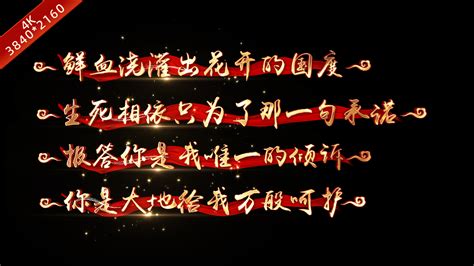 4K
3840*2160
鲜血浇灌出花开的国度
生死相依只为了那一句承诺
报答你是我唯一的倾诉
你是大地给我万般呵护